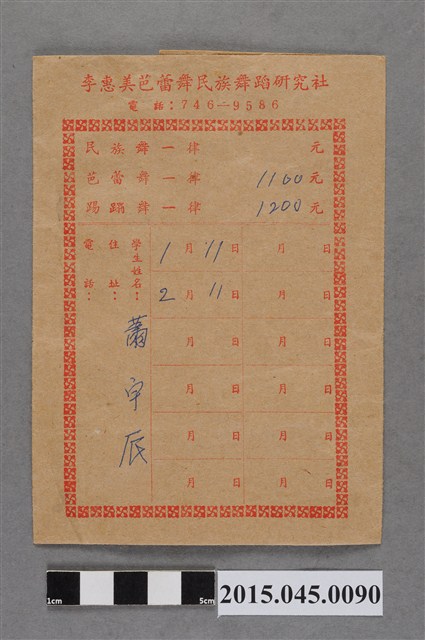 李惠美芭蕾舞民族舞蹈研究社
電話：746－9586
民族舞一律 元
芭蕾舞一律 1100元
踢蹋舞一律 1200元
學生姓名：蕭宇辰
住址：
電話：
1月11日 月 日
2月11日 月 日
月 日 月 日
月 日 月 日
月 日 月 日
月 日 月 日
1cm 5cm
2015.045.0090